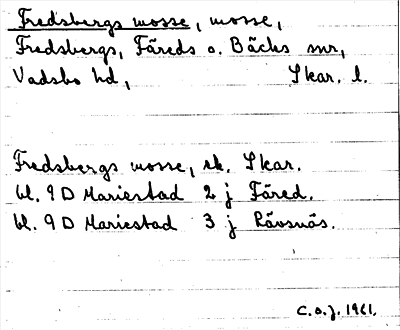 Fredsbergs mosse, mosse,
Fredsbergs, Färeds o. Bäcks snr,
Vadsbo hd, Skar. l.
Fredsbergs mosse, ek. Skar.
bl. 9 D Mariestad 2 j Färed.
bl. 9 D Mariestad 3 j Rävsnäs.
C.o.j. 1961.